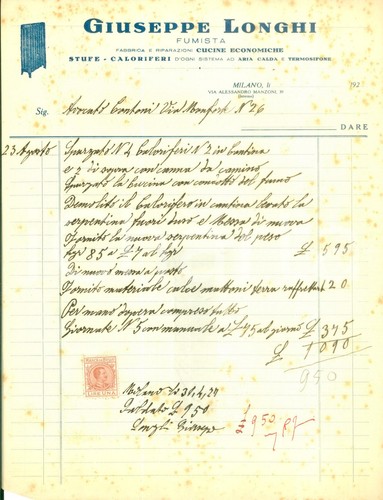 GIUSEPPE LONGHI
FUMISTA
FABBRICA E RIPARAZIONI CUCINE ECONOMICHE
STUFE - CALORIFERI D'OGNI SISTEMA AD ARIA CALDA E TERMOSIFONE
MILANO, li 192
VIA ALESSANDRO MANZONI,
Sig. Avocato Cantoni Via Monforte N° 26
DARE
23 Agosto Spazzato N° 4 Caloriferi N° 2 in Cantina
e 2 di sopra con canna da camino
Spazzato la Cucina con condotti del fumo
Demolito il Calorifero in cantina levato la
serpentina fuori d'uso e Messa di nuova
Fornito la nuova serpentina del peso
Kgr 85 a £ 7 al Kgr £ 595
Di nuovo messa a posto
Fornito materiale calce mattoni terra raffrattari 20
Per mano d'opera compreso tutto
Giornate N° 5 con manuale a £ 75 al giorno £ 375
£ 1090
950
Milano li 31.4.24
Saldato £ 950
Longhi Giuseppe
£ 950